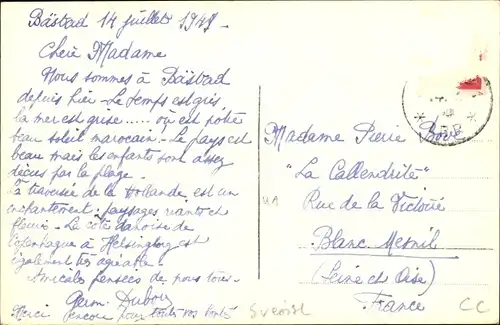 Båstad 14 juillet 194
Chère Madame
Nous sommes à Båstad
depuis hier - Le temps est gris
la mer est grise ..... où est notre
beau soleil marocain - Le pays est
beau mais les enfants sont assez
déçus par la plage -
La traversée de la Hollande est un
enchantement - paysages riants et
fleuris - La côte danoise de
Copenhague à Helsingborg est
également très agréable -
Amicales pensées de nous tous -
Germ. Dubois
Merci encore pour toutes vos bontés
Madame Pierre
"La Callendrite"
Rue de la Victoire
Blanc Mesnil
(Seine et Oise)
France
CC